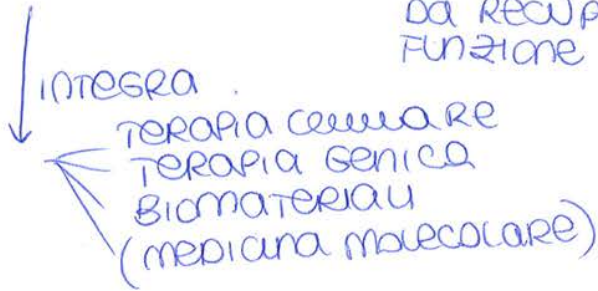 DA RECUP
FUNZIONE
INTEGRA
TERAPIA CELLULARE
TERAPIA GENICA
BIOMATERIALI
(MEDICINA MOLECOLARE)